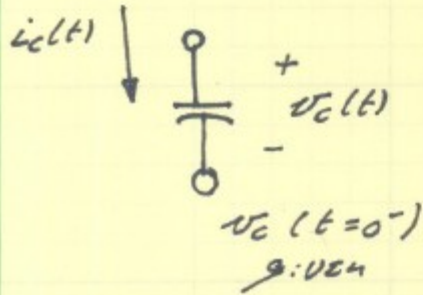 i_c(t)
+
v_c(t)
-
v_c (t=0⁻)
given